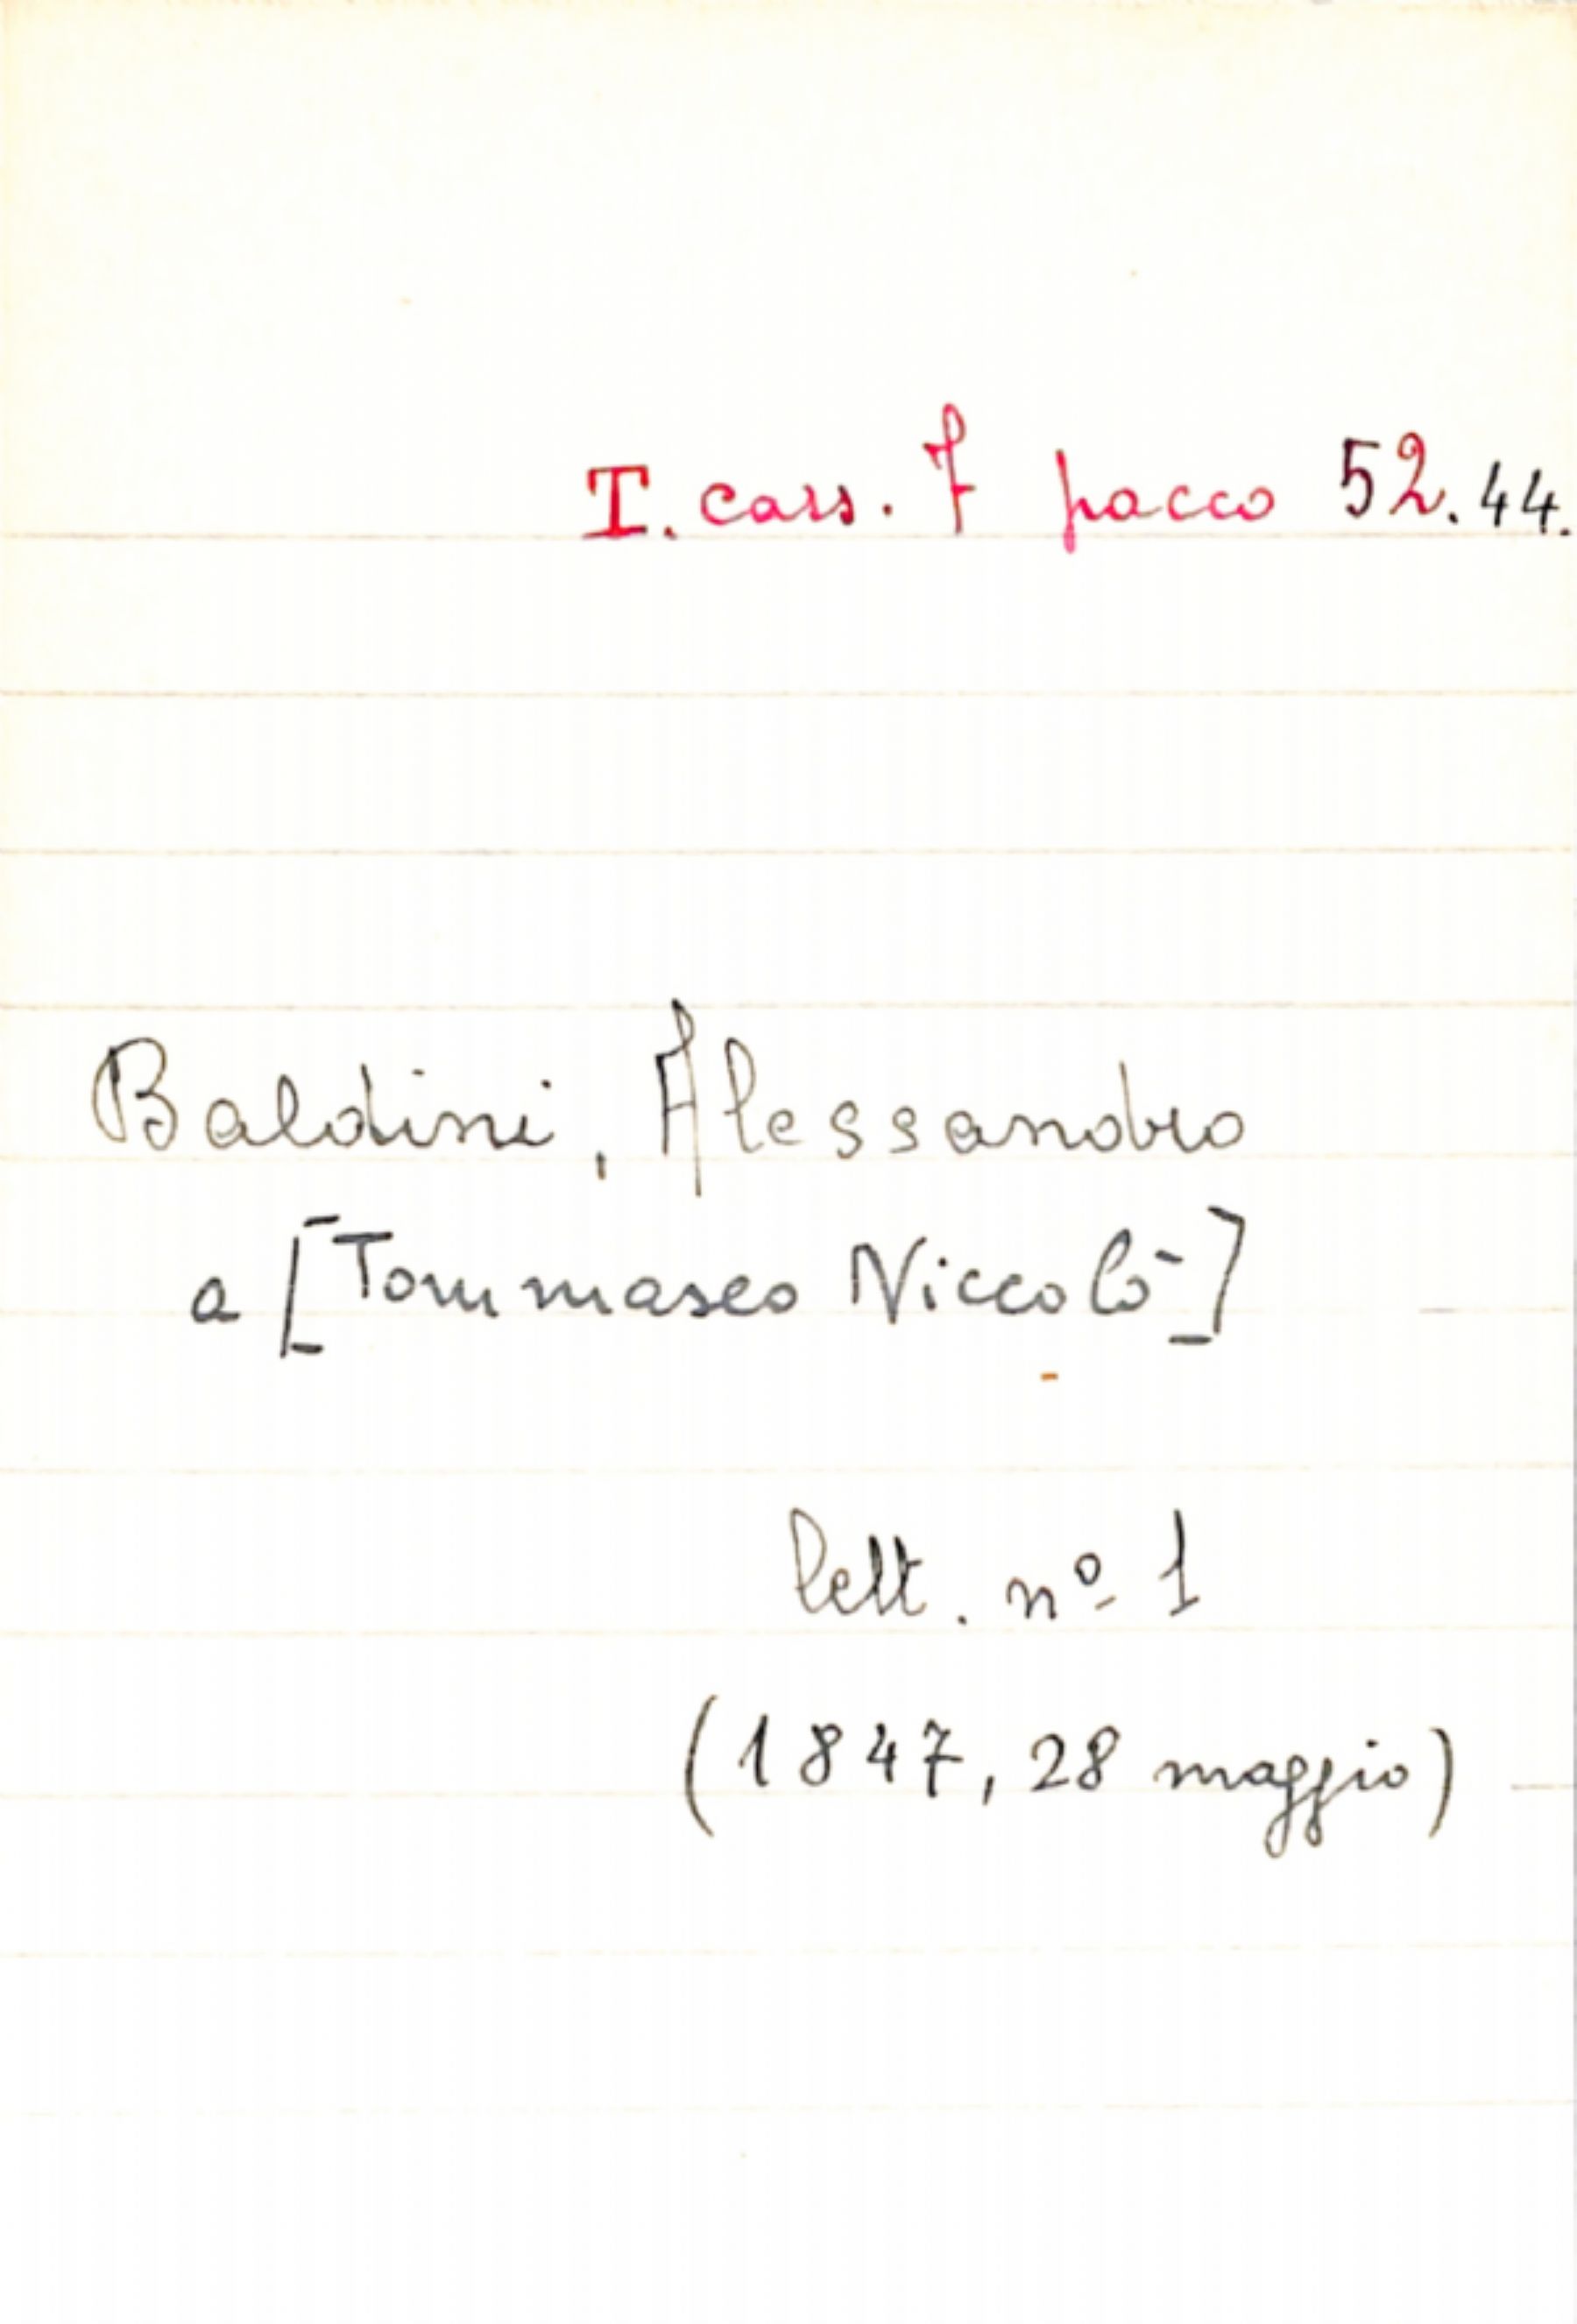 T. cass. 7 pacco 52.44.
Baldini, Alessandro
a [Tommaseo Niccolò]
lett. nº 1
(1847, 28 maggio)